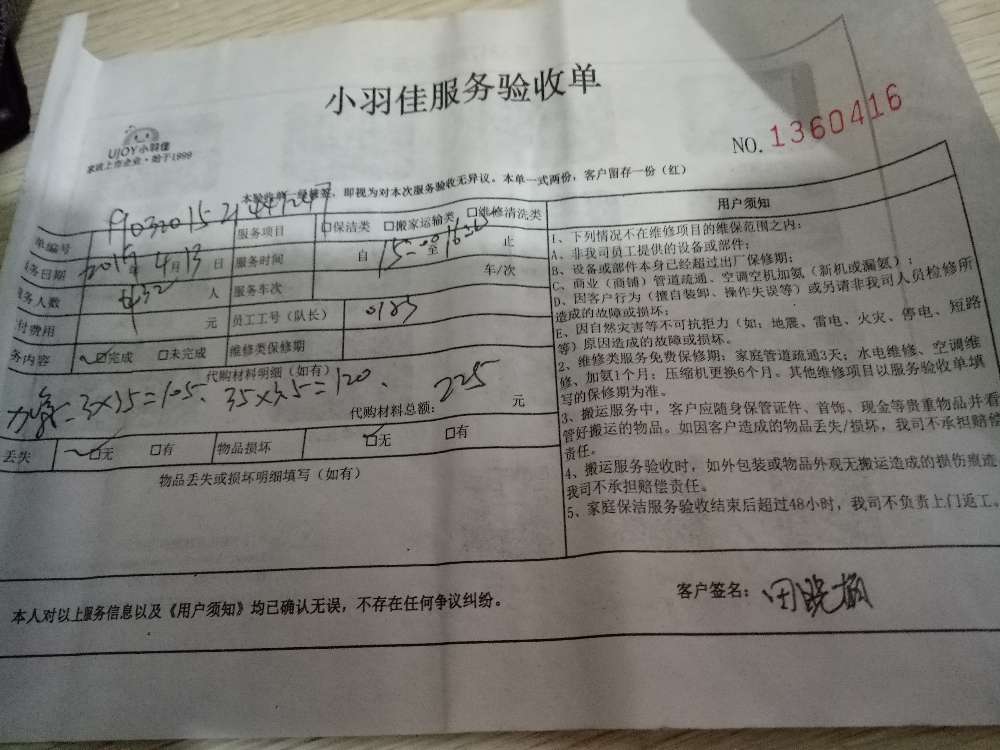 小羽佳服务验收单
UJOY小羽佳
家政上市企业·始于1999
NO. 1360416
即视为对本次服务验收无异议。本单一式两份，客户留存一份（红）
单编号
服务项目 □保洁类 □搬家运输类 □维修清洗类
务日期 2019年4月13日 服务时间 自 15:00 至 1636 止
务人数 人 服务车次 车/次
付费用 元 员工工号（队长） 0185
务内容 □完成 □未完成 维修类保修期
代购材料明细（如有）
3×35=105、35×3.5=120、
代购材料总额： 225 元
丢失 □无 □有 物品损坏 □无 □有
物品丢失或损坏明细填写（如有）
用户须知
1、下列情况不在维修项目的维保范围之内：
A、非我司员工提供的设备或部件；
B、设备或部件本身已经超过出厂保修期；
C、商业（商铺）管道疏通、空调空机加氨（新机或漏氨）；
D、因客户行为（擅自装卸、操作失误等）或另请非我司人员检修所
造成的故障或损坏；
E、因自然灾害等不可抗拒力（如：地震、雷电、火灾、停电、短路
等）原因造成的故障或损坏。
2、维修类服务免费保修期：家庭管道疏通3天；水电维修、空调维
修、加氨1个月；压缩机更换6个月。其他维修项目以服务验收单填
写的保修期为准。
3、搬运服务中，客户应随身保管证件、首饰、现金等贵重物品并看
管好搬运的物品。如因客户造成的物品丢失/损坏，我司不承担赔偿
责任。
4、搬运服务验收时，如外包装或物品外观无搬运造成的损伤痕迹
我司不承担赔偿责任。
5、家庭保洁服务验收结束后超过48小时，我司不负责上门返工。
本人对以上服务信息以及《用户须知》均已确认无误，不存在任何争议纠纷。
客户签名：